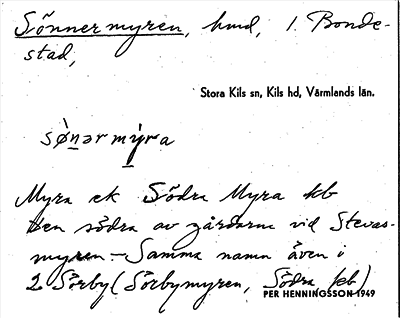 Sönnermyren, hmd, 1. Bonde-
stad,
Stora Kils sn, Kils hd, Värmlands län.
sø̀nərmyra
Myra ek Södra Myra kb
Den södra av gårdarna vid Stevas-
myren – Samma namn även i
2 Sörby (Sörbymyren, Södra kb)
PER HENNINGSSON 1949